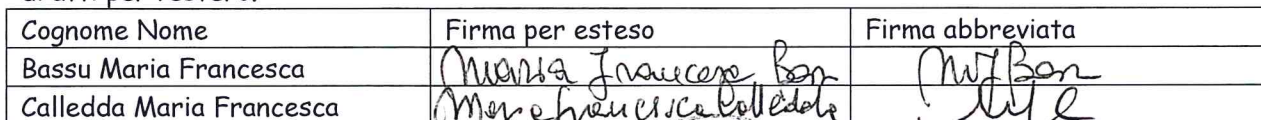 Cognome Nome Firma per esteso Firma abbreviata
Bassu Maria Francesca Maria Francesca
Calledda Maria Francesca Maria Francesca Calledda